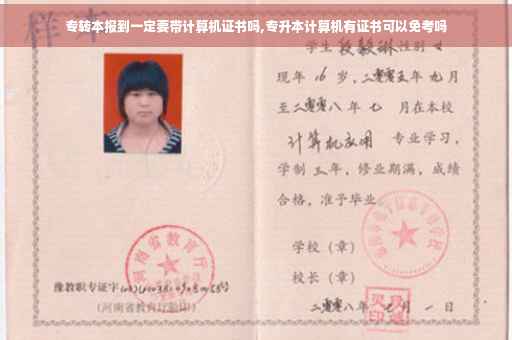 样本
专转本报到一定要带计算机证书吗,专升本计算机有证书可以免考吗
学生段毅琳性别女
现年16岁,二零零五年九月
至二零零八年七月在本校
计算机应用 专业学习,
学制三年,修业期满,成绩
合格,准予毕业
学校(章)
校长(章)
二零零八年七月一日
河南省教育厅
豫教职专证字
(河南省教育厅验印)